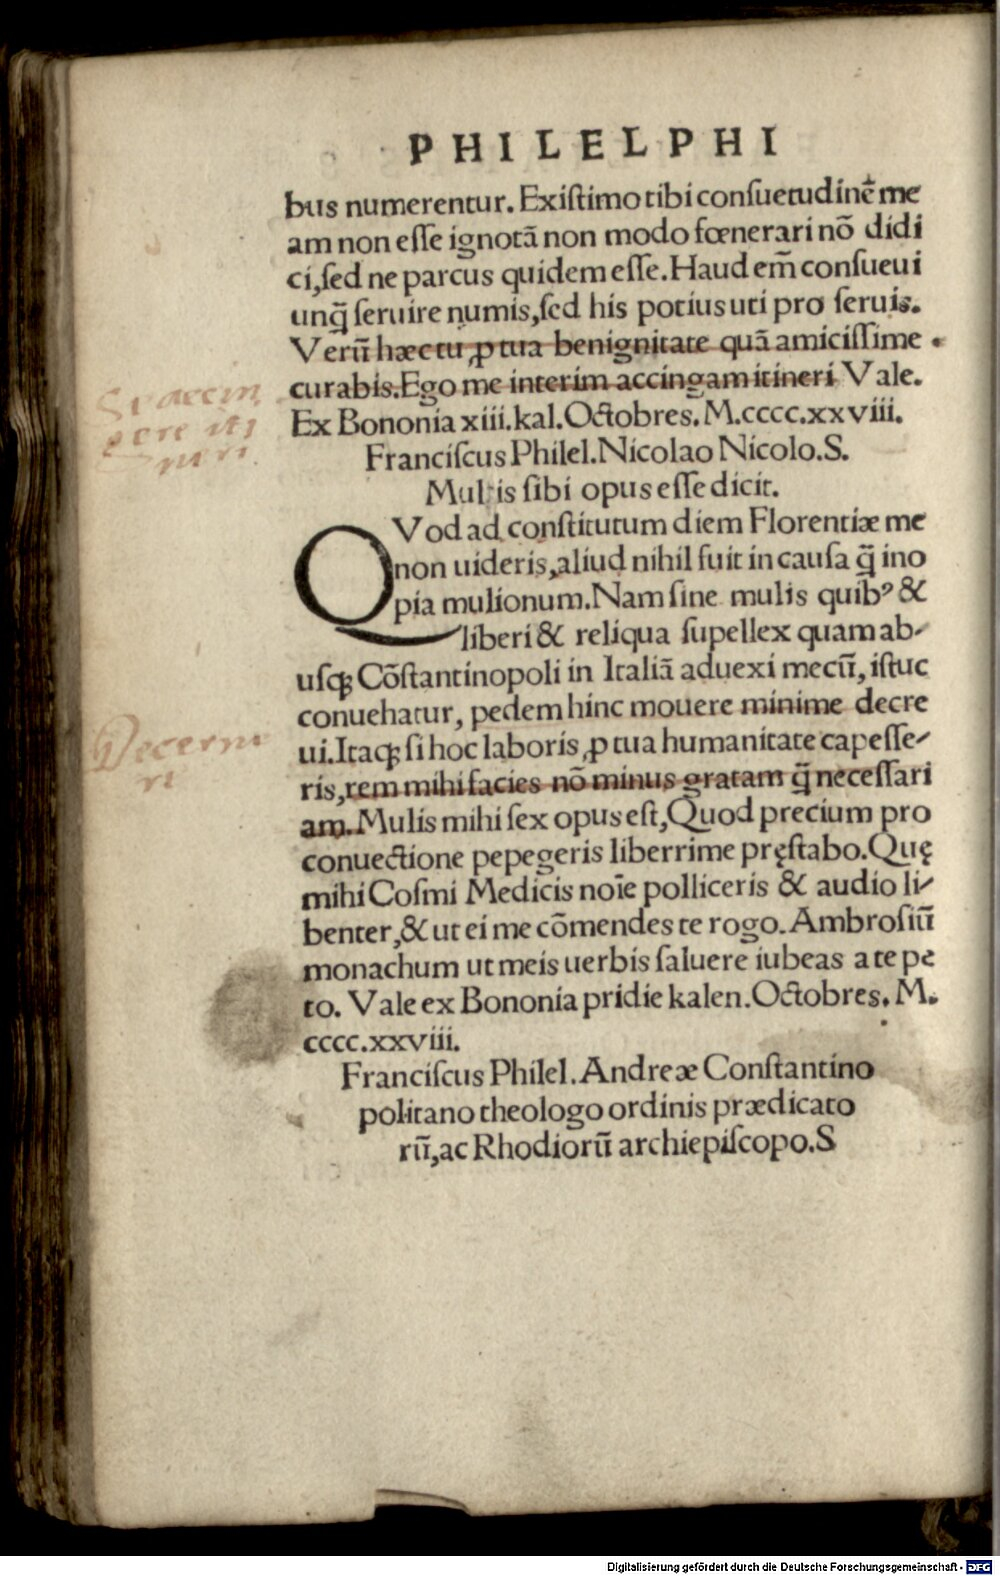 PHILELPHI
bus numerentur. Existimo tibi consuetudinē me
am non esse ignotā non modo fœnerari nō didi
ci, sed ne parcus quidem esse. Haud em̄ consueui
unq̄ seruire numis, sed his potius uti pro seruis.
Verū hæc tu ꝓ tua benignitate quā amicissime
curabis. Ego me interim accingam itineri Vale.
Ex Bononia xiii. kal. Octobres. M.cccc.xxviii.
Franciscus Philel. Nicolao Nicolo. S.
Mulis sibi opus esse dicit.
QVod ad constitutum diem Florentiæ me
non uideris, aliud nihil fuit in causa q̄ ino
pia mulionum. Nam sine mulis quibꝰ &
liberi & reliqua supellex quam ab-
usqꝫ Cōstantinopoli in Italiā aduexi mecū, istuc
conuehatur, pedem hinc mouere minime decre
ui. Itaqꝫ si hoc laboris ꝓ tua humanitate capesse-
ris, rem mihi facies nō minus gratam q̄ necessari
am. Mulis mihi sex opus est, Quod precium pro
conuectione pepegeris liberrime pręstabo. Quę
mihi Cosmi Medicis noīe polliceris & audio li-
benter, & ut ei me cōmendes te rogo. Ambrosiū
monachum ut meis uerbis saluere iubeas a te pe
to. Vale ex Bononia pridie kalen. Octobres. M.
cccc.xxviii.
Franciscus Philel. Andreæ Constantino
politano theologo ordinis prædicato
rū, ac Rhodiorū archiepiscopo. S
accin
gere iti
neri
Decerne
ri
Digitalisierung gefördert durch die Deutsche Forschungsgemeinschaft - DFG